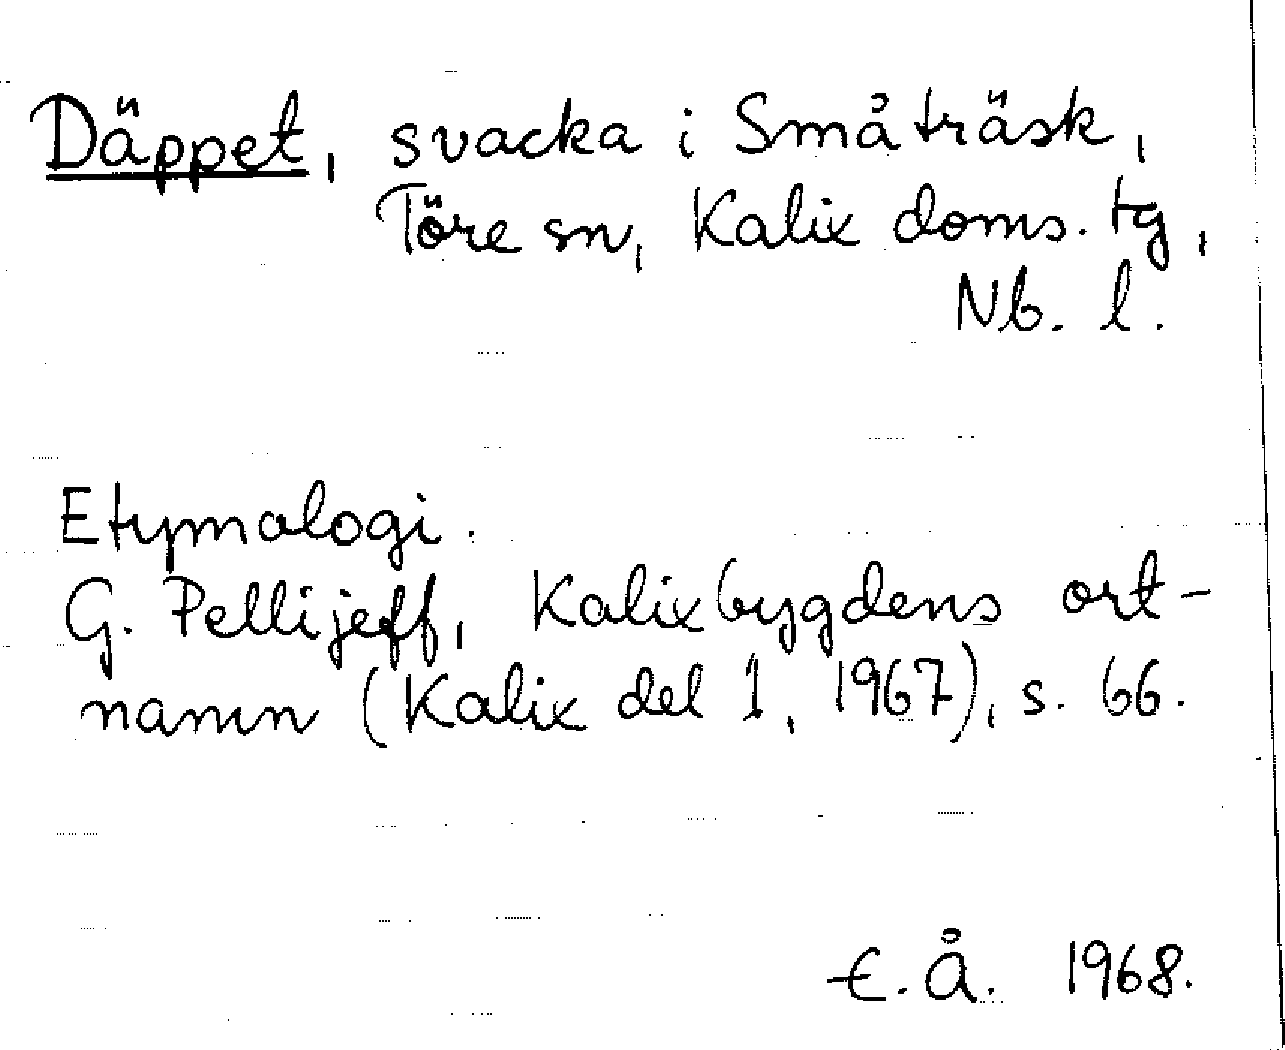 Däppet, svacka i Småträsk,
Töre sn, Kalix doms. tg,
Nb. l.
Etymologi.
G. Pellijeff, Kalixbygdens ort-
namn (Kalix del 1, 1967), s. 66.
E. Å. 1968.